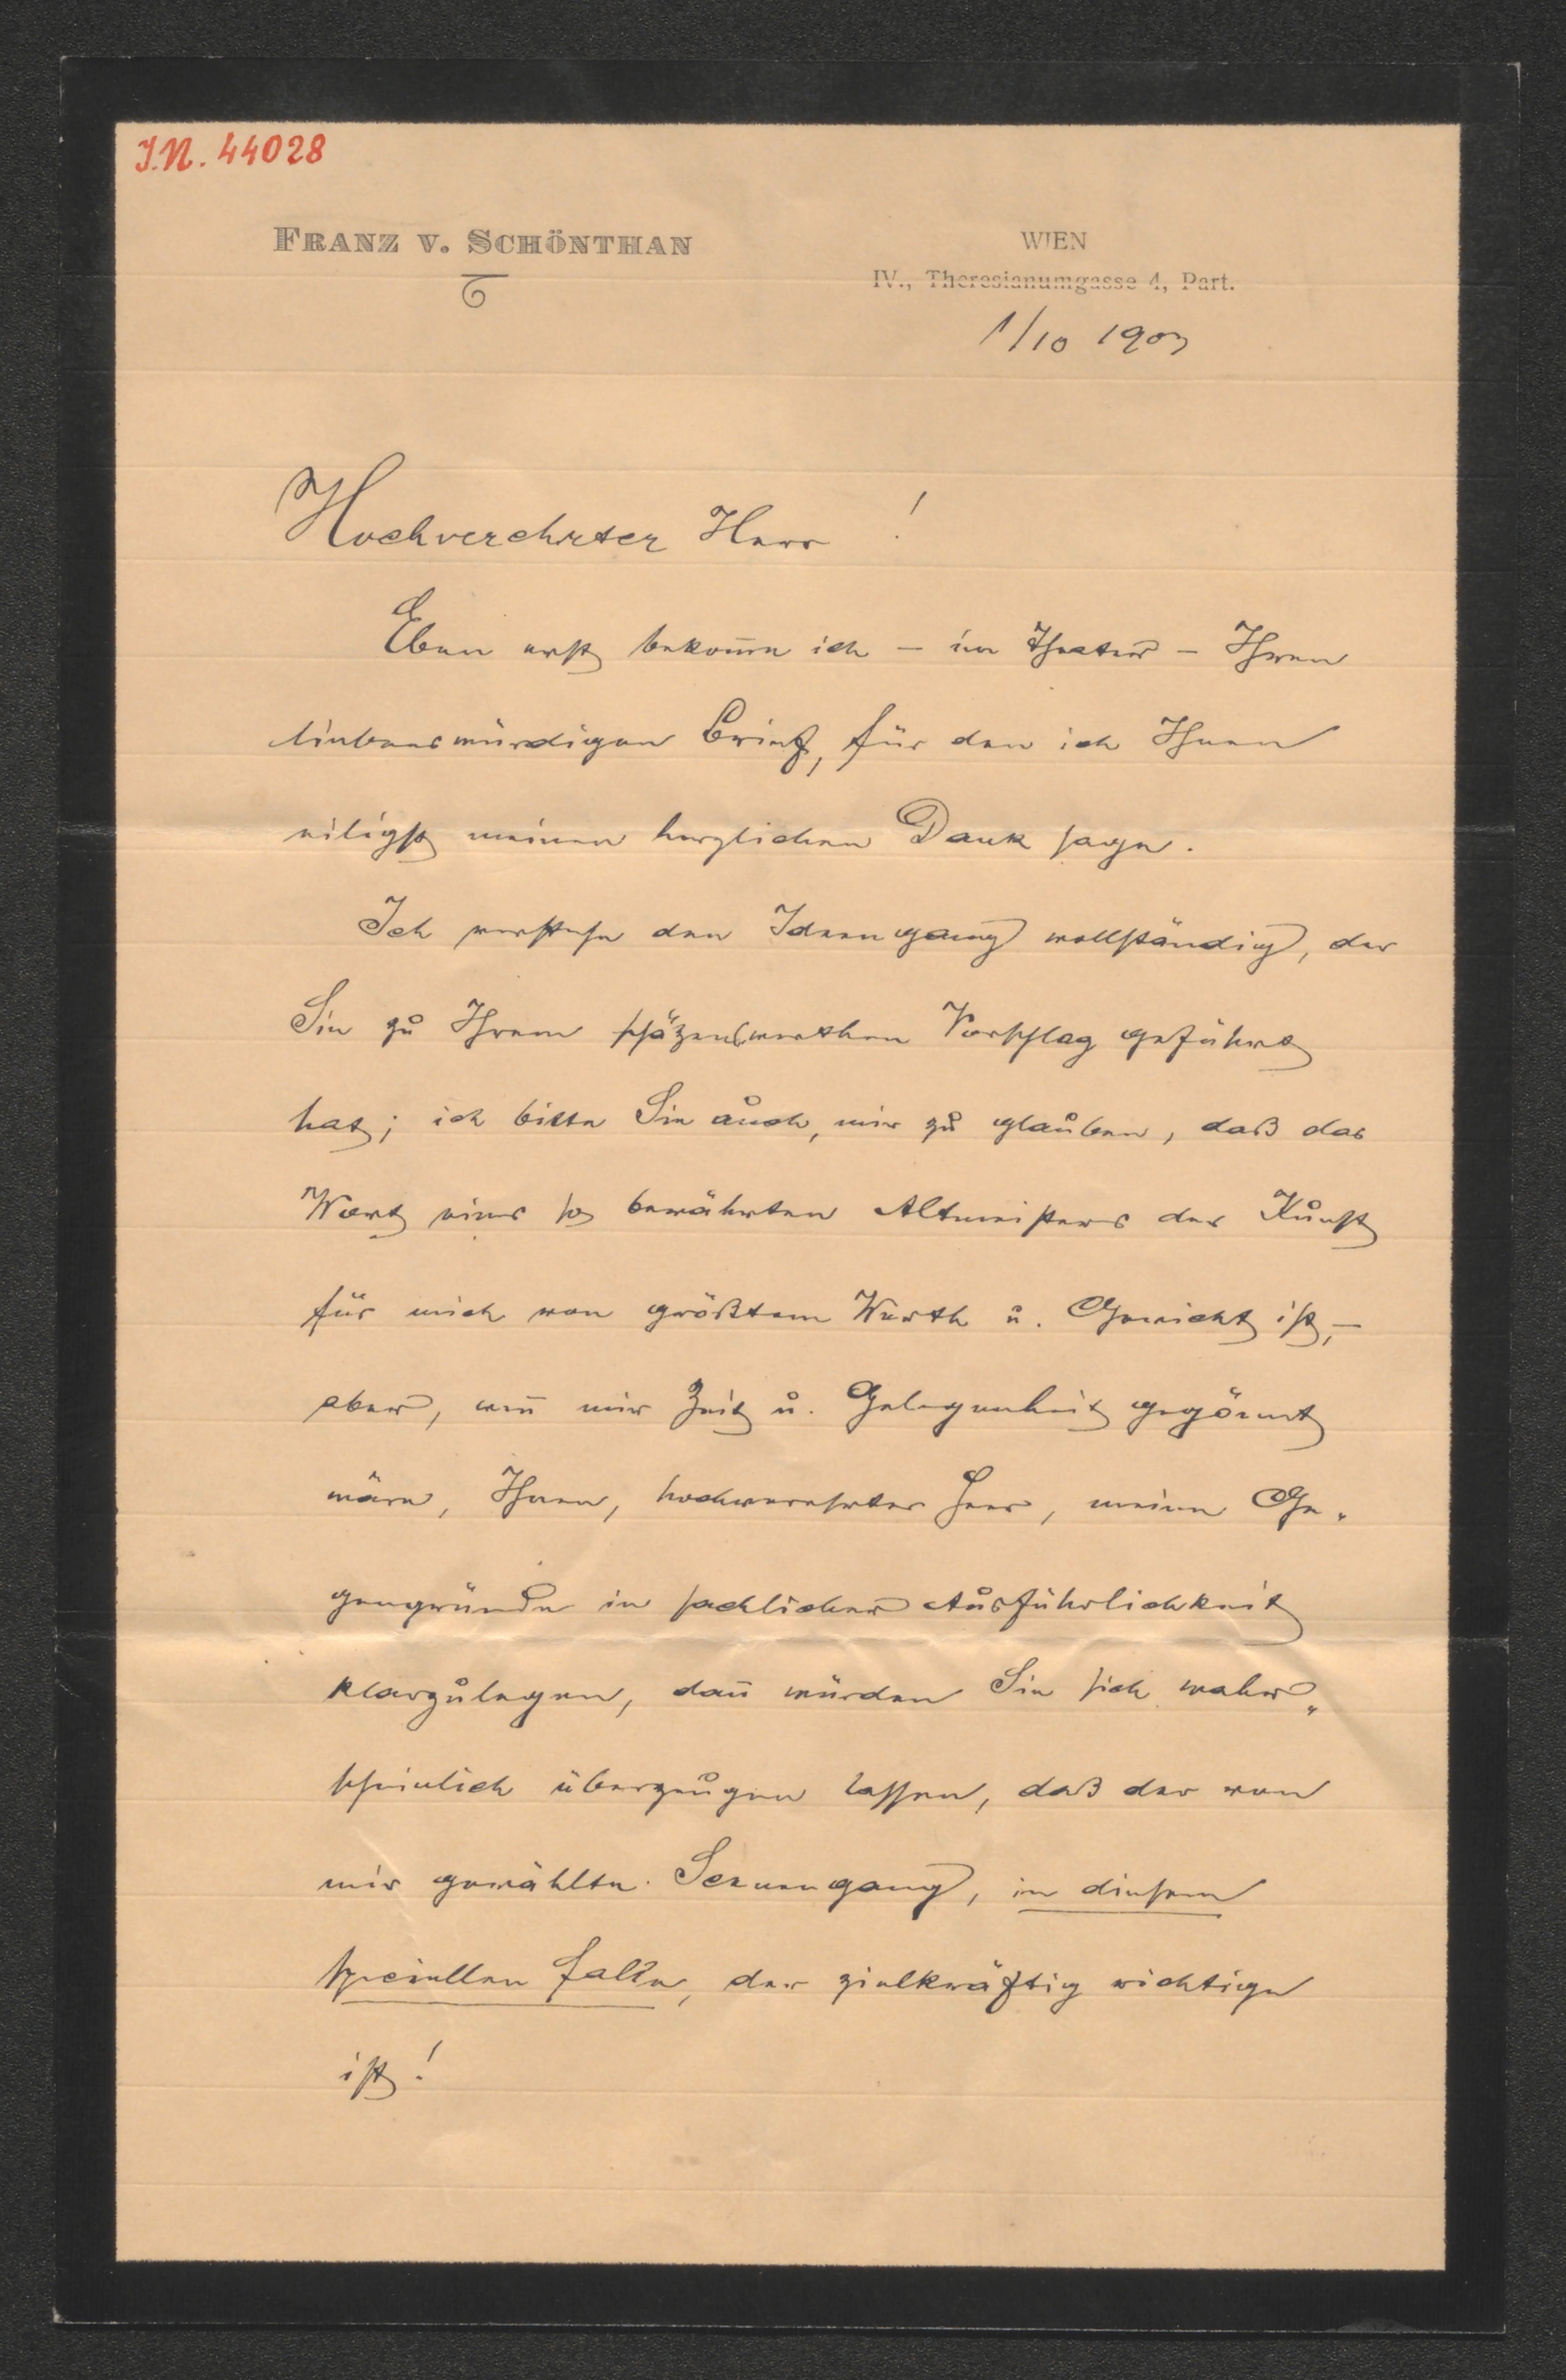 J.N. 44028
FRANZ V. SCHÖNTHAN
WIEN
IV., Theresianumgasse 4, Part.
1/10 1903
Hochverehrter Herr !
Eben erst bekom̄e ich – im Theater – Ihren
liebenswürdigen Brief, für den ich Ihnen
eiligst meinen herzlichen Dank sage.
Ich verstehe den Ideengang vollständig, der
Sie zu Ihrem schäzenswerthen Vorschlag geführt
hat; ich bitte Sie auch, mir zu glauben, daß das
Wort eines so bewährten Altmeisters der Kunst
für mich von größtem Werth u. Gewicht ist, –
aber, wen̄ mir Zeit u. Gelegenheit gegönnt
wäre, Ihnen, hochverehrter Herr, meine Ge„
gengründe in sachlicher Ausführlichkeit
klarzulegen, dan̄ würden Sie sich wahr„
scheinlich überzeugen lassen, daß der von
mir gewählte Scenengang, in diesem
speciellen Falle, der zielkräftig richtige
ist!